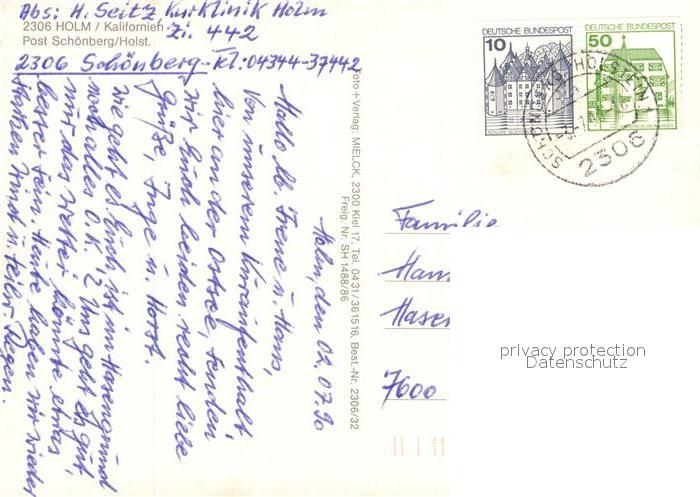 Abs: H. Seitz, Kurklinik Holm
Zi. 442
2306 HOLM / Kalifornien
Post Schönberg/Holst.
2306 Schönberg - Tel: 04344-37442
Holm, den 02.07.90
Hallo lb. Irene u. Hans,
Von unserem Kuraufenthalt
hier an der Ostsee, senden
wir Euch beiden recht liebe
Grüße, Inge u. Horst.
Wie geht es Euch, ist im Hasengrund
noch alles O.K.? Uns geht es gut
nur das Wetter könnte etwas
besser sein. Heute haben wir wieder
starken Wind u. Regen.
Foto+Verlag: MIELCK, 2300 Kiel 17, Tel. 0431/361516, Best.-Nr. 2306/32
Freig. Nr. SH 1488/86
10 DEUTSCHE BUNDESPOST
50 DEUTSCHE BUNDESPOST
2306
Familie
Han
Hasen
7600
privacy protection
Datenschutz